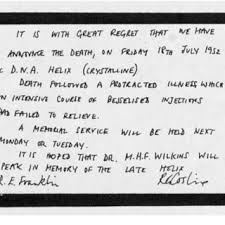 IT IS WITH GREAT REGRET THAT WE HAVE
ANNOUNCE THE DEATH, ON FRIDAY 18TH JULY 1952
D.N.A. HELIX (CRYSTALLINE)
DEATH FOLLOWED A PROTRACTED ILLNESS WHICH
INTENSIVE COURSE OF BESSELISED INJECTIONS
HAD FAILED TO RELIEVE.
A MEMORIAL SERVICE WILL BE HELD NEXT
MONDAY OR TUESDAY.
IT IS HOPED THAT DR. M.H.F. WILKINS WILL
SPEAK IN MEMORY OF THE LATE HELIX
R. E. Franklin